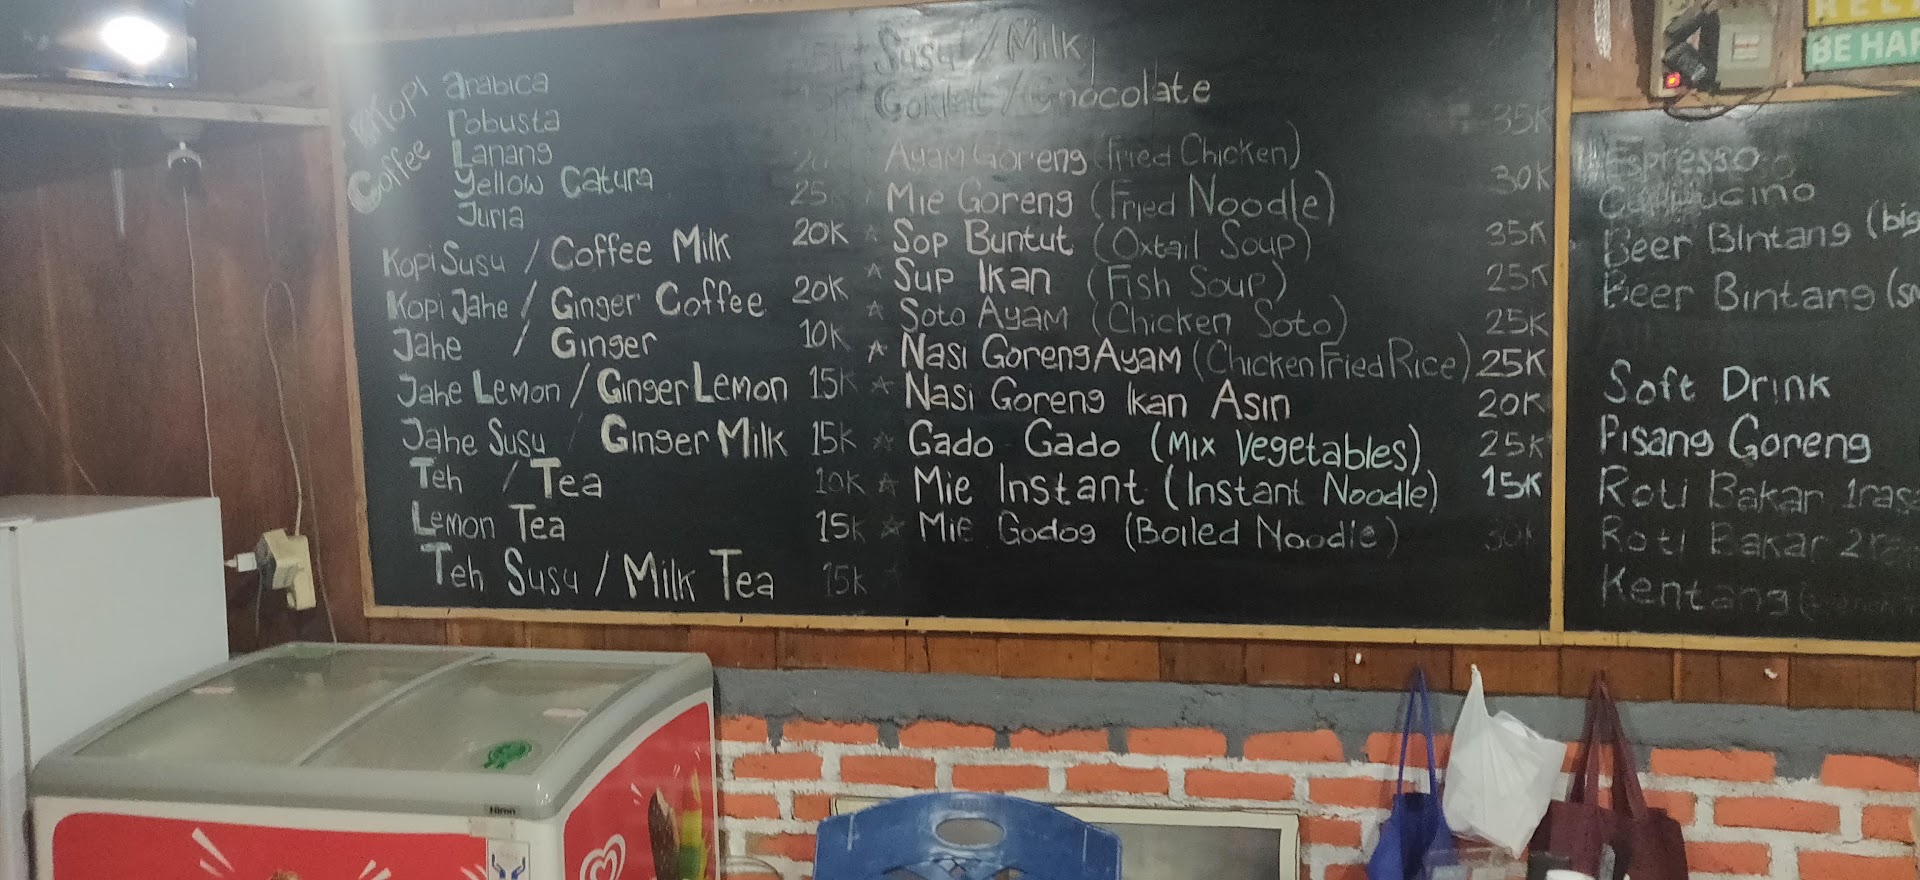 Kopi
Coffee
Arabica
Robusta
Lanang
Yellow Catura
Juria 25
Kopi Susu / Coffee Milk 20K
Kopi Jahe / Ginger Coffee 20K
Jahe / Ginger 10K
Jahe Lemon / Ginger Lemon 15K
Jahe Susu / Ginger Milk 15K
Teh / Tea 10K
Lemon Tea 15K
Teh Susu / Milk Tea 15K
Susu / Milk
Coklat / Chocolate
Ayam Goreng (Fried Chicken) 35K
Mie Goreng (Fried Noodle) 30K
Sop Buntut (Oxtail Soup) 35K
Sup Ikan (Fish Soup) 25K
Soto Ayam (Chicken Soto) 25K
Nasi Goreng Ayam (Chicken Fried Rice) 25K
Nasi Goreng Ikan Asin 20K
Gado Gado (Mix Vegetables) 25K
Mie Instant (Instant Noodle) 15K
Mie Godog (Boiled Noodle) 30K
BE HA
Espresso
Cappucino
Beer Bintang (big
Beer Bintang (sm
Soft Drink
Pisang Goreng
Roti Bakar 1rasa
Roti Bakar 2ra
Kentang